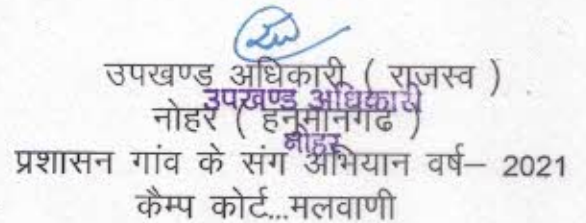 उपखण्ड अधिकारी ( राजस्व )
उपखण्ड अधिकारी
नोहर ( हनुमानगढ )
नोहर
प्रशासन गांव के संग अभियान वर्ष– 2021
कैम्प कोर्ट...मलवाणी